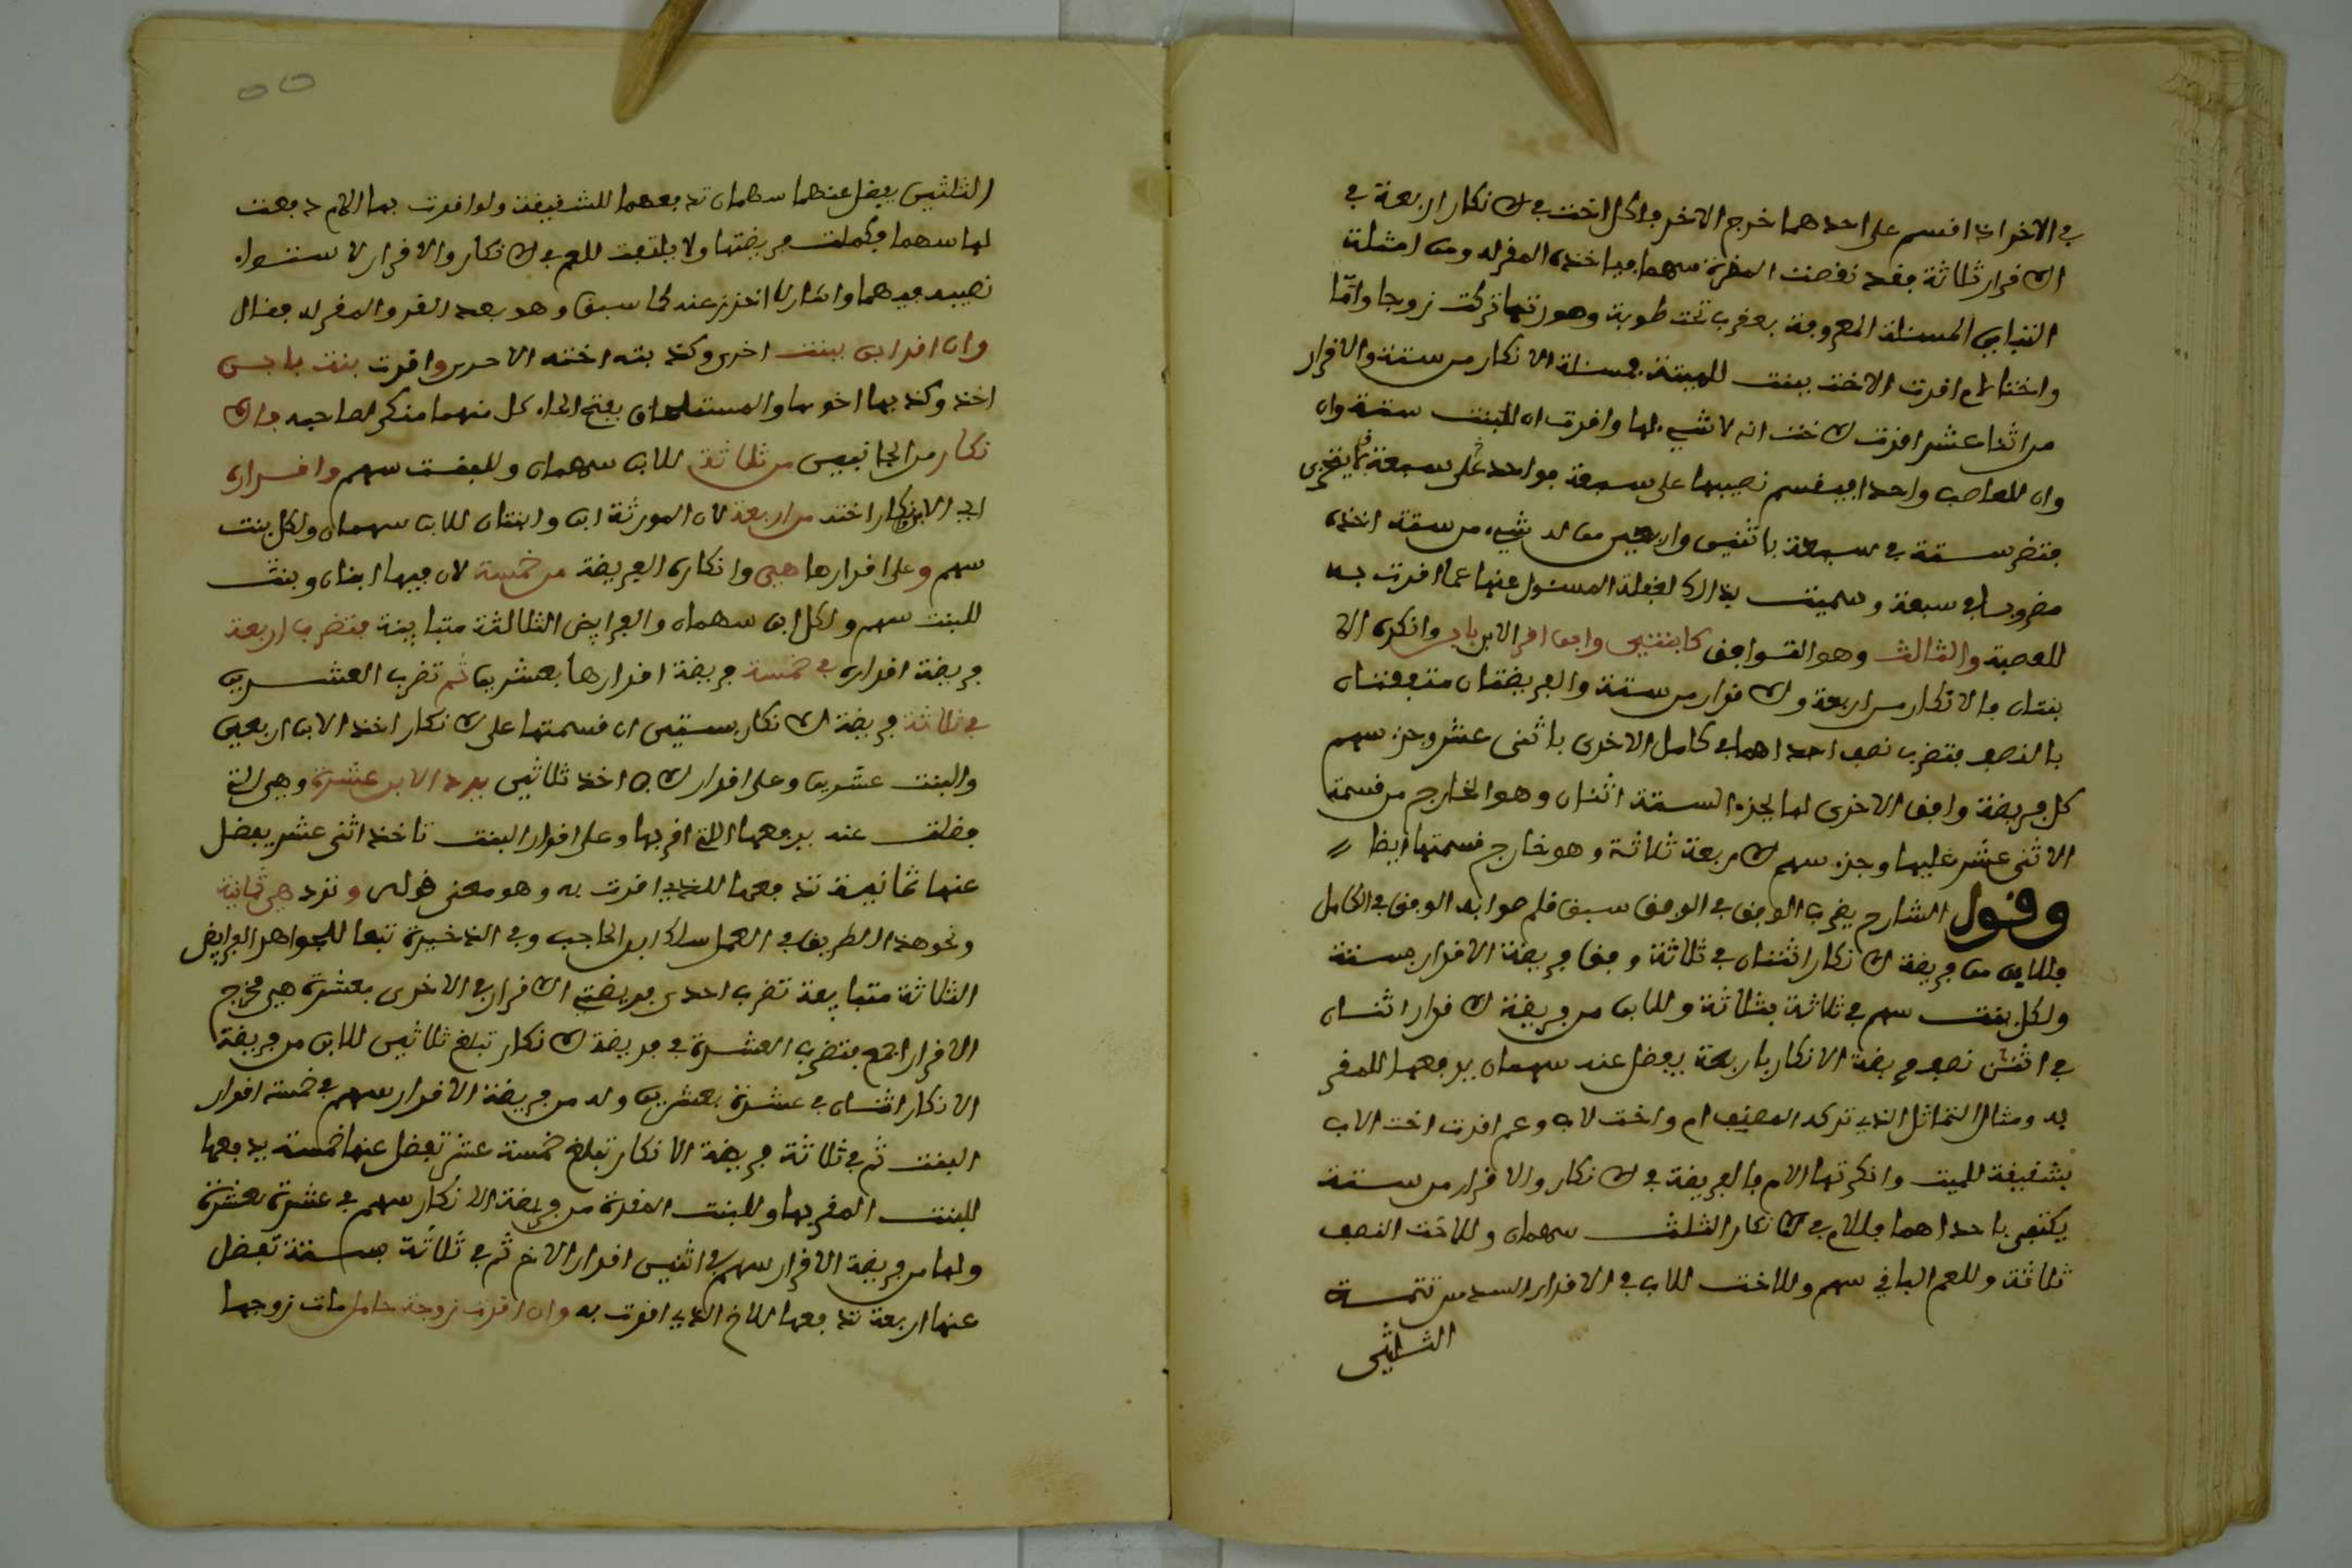 في الاخر اذا اقسم على احدهما خرج الاخر فلكل اخت في الانكار اربعة في
الاقرار ثلاثة فقد نقصت المقرة سهما فياخذه المقر له ومن امثلة
التباين المسئلة المعروفة بعقرب تحت طوبة وهو زنها تركت زوجا واما
واختا لام اقرت الاخت ببنت للميتة فمسئلة الانكار من ستة والاقرار
من اثنا عشر اقرت الاخت انه لا شيء لها واقرت ان للبنت ستة وان
وان للعاصب واحدا فيقسم نصيبها على سبعة فواحد على سبعة
فتضرب ستة في سبعة باثنين واربعين من له شيء من ستة اخذه
مضروبا في سبعة وسميت بذلك لغفلة المسئول عنها عما اقرت به
للعصبة والثالث وهو التوافق كابنتين وابن اقر الابن بابن وانكره الا
بنتان فالانكار من اربعة والاقرار من ستة والفريضتان متفقتان
بالنصف فتضرب نصف احداهما في كامل الاخرى باثنى عشر وجزء سهم
كل فريضة وافق الاخرى لها لجزء الستة اثنان وهو الخارج من قسمة
الاثنى عشر عليها وجزء سهم الاربعة ثلاثة وهو خارج قسمتها ايضا
وقول الشارح يضرب الوفق في الوفق سبق قلم صوابه الوفق في الكامل
فللابن من فريضة الانكار اثنان في ثلاثة وفق فريضة الاقرار بستة
ولكل بنت سهم في ثلاثة بثلاثة وللابن من فريضة الاقرار اثنان
في اثنين نصف فريضة الانكار باربعة يفضل عنه سهمان يدفعهما للمقر
به ومثال التماثل الذي تركه المصنف ام واخت لاب وعم اقرت اخت الاب
بشقيقة للميت وانكرتها الام فالفريضة في الانكار والاقرار من ستة
يكتفى باحداهما فللام في الانكار الثلث سهمان وللاخت النصف
ثلاثة وللعم الباقي سهم وللاخت للاب في الاقرار السدس تتمة
الثلثين
الثلثين يفضل عنها سهمان تدفعهما للشقيقة ولو اقرت بها الام دفعت
لها سهما فكملت فريضتها ولا يلتفت للعم في الانكار والاقرار لاستواء
نصيبه فيهما واشار لما احترز عنه كما سبق وهو بعد المقر والمقر له فقال
وان اقر ابن ببنت اخرى وكذبته اخته الا واقرت بنت بابن
اخذ وكذبها اخوها والمستلحان بفتح الحاء كل منهما منكر لصاحبه فالا
نكار من الجانبين من ثلاثة للابن سهمان وللبنت سهم واقراره
اي الابن بانكار اخته من اربعة لان الورثة ابن وابنتان للابن سهمان ولكل بنت
سهم وعلى اقرارها هي وانكاره الفريضة من خمسة لان فيها ابنان وبنت
للبنت سهم ولكل ابن سهمان والفرايض الثلاثة متباينة فتضرب اربعة
فريضة اقراره في خمسة فريضة اقرارها بعشرين ثم تضرب العشرين
في ثلاثة فريضة الانكار بستين ان قسمتها على الانكار اخذ الابن اربعين
والبنت عشرين وعلى اقرار الابن اخذ ثلاثين يرد الابن عشرة وهي التي
فضلت عنه يدفعها التي اقر بها وعلى اقرار البنت تاخذ اثنى عشر يفضل
عنها ثمانية تدفعها للذي اقرت به وهو معنى قوله وترد هي ثمانية
ونحو هذا الطريق في العمل سلك ابن الحاجب وفي الذخيرة تبعا للجواهر الفرايض
الثلاثة متباينة تضرب احدى فريضتي الاقرار في الاخرى بعشرة هي مخرج
الاقرار اجمع فتضرب العشرة في فريضة الانكار تبلغ ثلاثين للابن من فريضة
الانكار اثنان في عشرة بعشرين وله من فريضة الاقرار سهم في خمسة اقرار
البنت ثم في ثلاثة فريضة الانكار تبلغ خمسة عشر تفضل عنها خمسة يدفعها
للبنت المقر بها وللبنت المقرة من فريضة الانكار سهم في عشرة بعشرة
ولها من فريضة الاقرار سهم في اثنين اقرار الاخ ثم في ثلاثة بستة تفضل
عنها اربعة تدفعها للاخ الذي اقرت به وان اقرت زوجة حامل مات زوجها